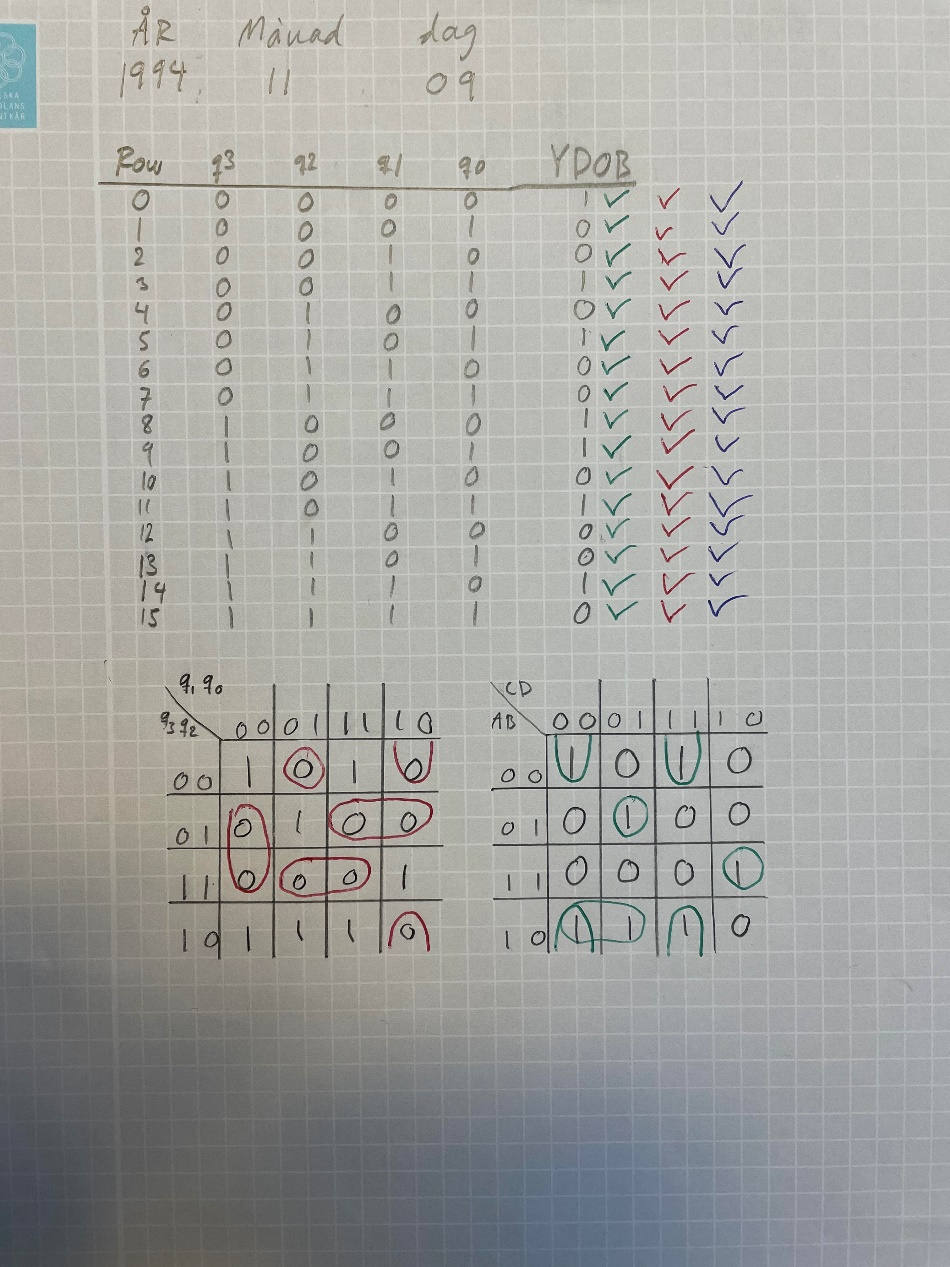 ÅR Månad dag
1994. 11 . 09
Row q3 q2 q1 q0 YDOB
0 0 0 0 0 1 ✓ ✓ ✓
1 0 0 0 1 0 ✓ ✓ ✓
2 0 0 1 0 0 ✓ ✓ ✓
3 0 0 1 1 1 ✓ ✓ ✓
4 0 1 0 0 0 ✓ ✓ ✓
5 0 1 0 1 1 ✓ ✓ ✓
6 0 1 1 0 0 ✓ ✓ ✓
7 0 1 1 1 0 ✓ ✓ ✓
8 1 0 0 0 1 ✓ ✓ ✓
9 1 0 0 1 1 ✓ ✓ ✓
10 1 0 1 0 0 ✓ ✓ ✓
11 1 0 1 1 1 ✓ ✓ ✓
12 1 1 0 0 0 ✓ ✓ ✓
13 1 1 0 1 0 ✓ ✓ ✓
14 1 1 1 0 1 ✓ ✓ ✓
15 1 1 1 1 0 ✓ ✓ ✓
q1 q0
q3 q2 00 01 11 10
00 1 0 1 0
01 0 1 0 0
11 0 0 0 1
10 1 1 1 0
CD
AB 00 01 11 10
00 1 0 1 0
01 0 1 0 0
11 0 0 0 1
10 1 1 1 0